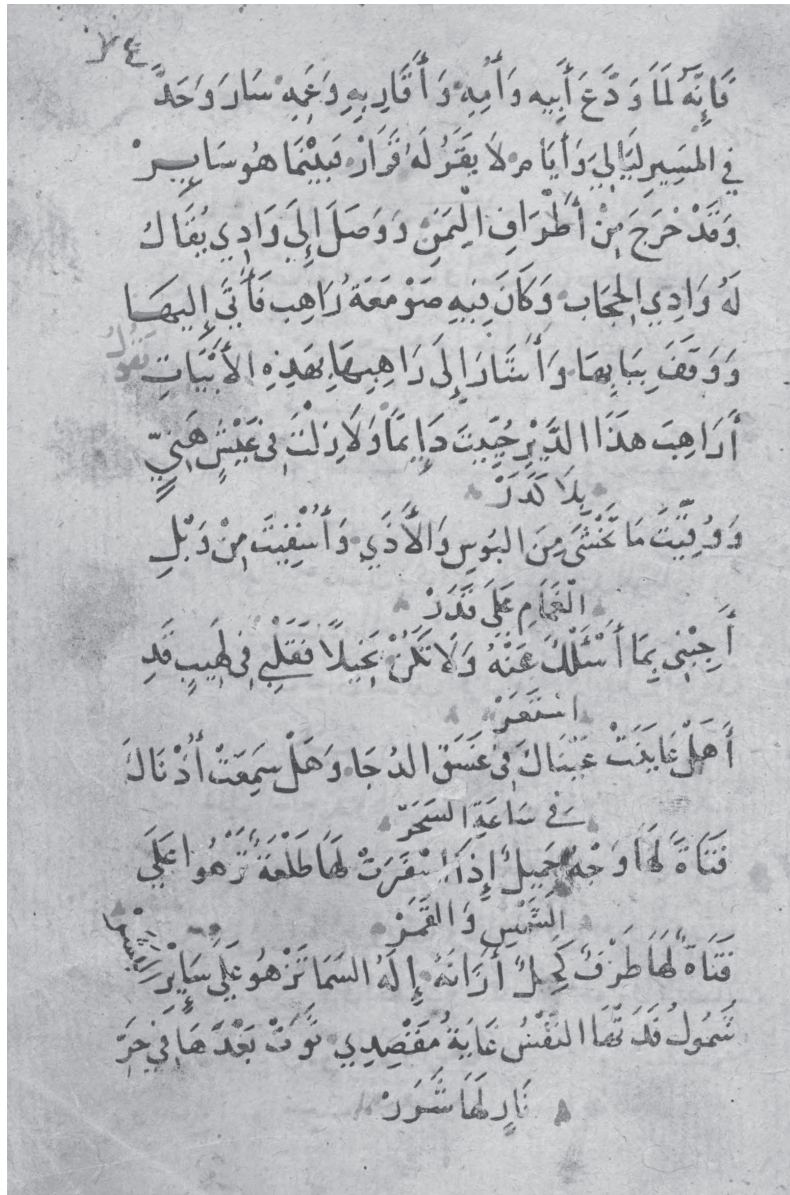 ٧٤
فَإِنَّهُ لَمَا وَدَّعَ أَبِيه وَأُمِهِ وَأَقَارِبِهِ وَعَمِهِ سَارَ وَحَدَّ
فِي المَسِيرِ لَيَالِيَ وَأَيَامٍ لَا يَقَرُ لَهُ قَرَارْ فَبَيْنَمَا هُو سَايِرْ
وَقَدْ خَرَجَ مِنْ أَطْرَافِ الْيَمَنِ وَوَصَلَ إِلَيَ وَادِي يُقَالُ
لَهُ وَادِي الحِجَابِ وَكَانَ فِيهِ صَوْمَعَةُ رَاهِب فَأَتَيَ إِلَيهَا
وَوَقَفَ بِبَابِهَا وَأَشَارَ إِلَى رَاهِبِهَا بِهَذِهِ الأَبْيَاتِ يَقُولُ
أَرَاهِبَ هذَا الدَّيْرِ حُيِّيتَ دَايِمًا وَلَا زِلْتَ فِي عَيْشٍ هَنِيٍّ
بِلَا كَدَرْ
وَوُقِّيتَ مَا تَخْشَى مِنَ البُوسِ وَالأَذَي وَأُسْقِيتَ مِنْ وَبْلِ
الْغَمَامِ عَلَى قَدَرْ
أَجِبْنِي بِمَا أَسْئَلْكَ عَنْهُ وَلَا تَكُنْ بَخِيلًا فَقَلْبِي فِي لَهِيبٍ قَدِ
اسْتَعَرْ
أَهَلْ عَايَنَتْ عَيْنَاكَ فِي غَسَقِ الدُجَا وَهَلْ سَمِعَتْ أُذْنَاكَ
فِي سَاعَةِ السَحَرْ
فَتَاةً لَهَا وَجْهٌ جَمِيلٌ إِذَا اسْفَرَتْ لَهَا طَلْعَةٌ تَزْهُوا عَلَي
الشَمْسِ وَالقَمَرْ
فَتَاةً لَهَا طَرْفٌ كَحِيلٌ أَزَانَهُ إِلَهُ السَمَا تَزْهُو عَلَى سَايِرْ البَشَرْ
شَمُولُ فَدَتْهَا النَفْسُ غَايَةُ مَقْصِدِي ثَوَتْ بَعْدَهَا فِي حَرِّ
نَارٍ لَهَا شَرَرْ